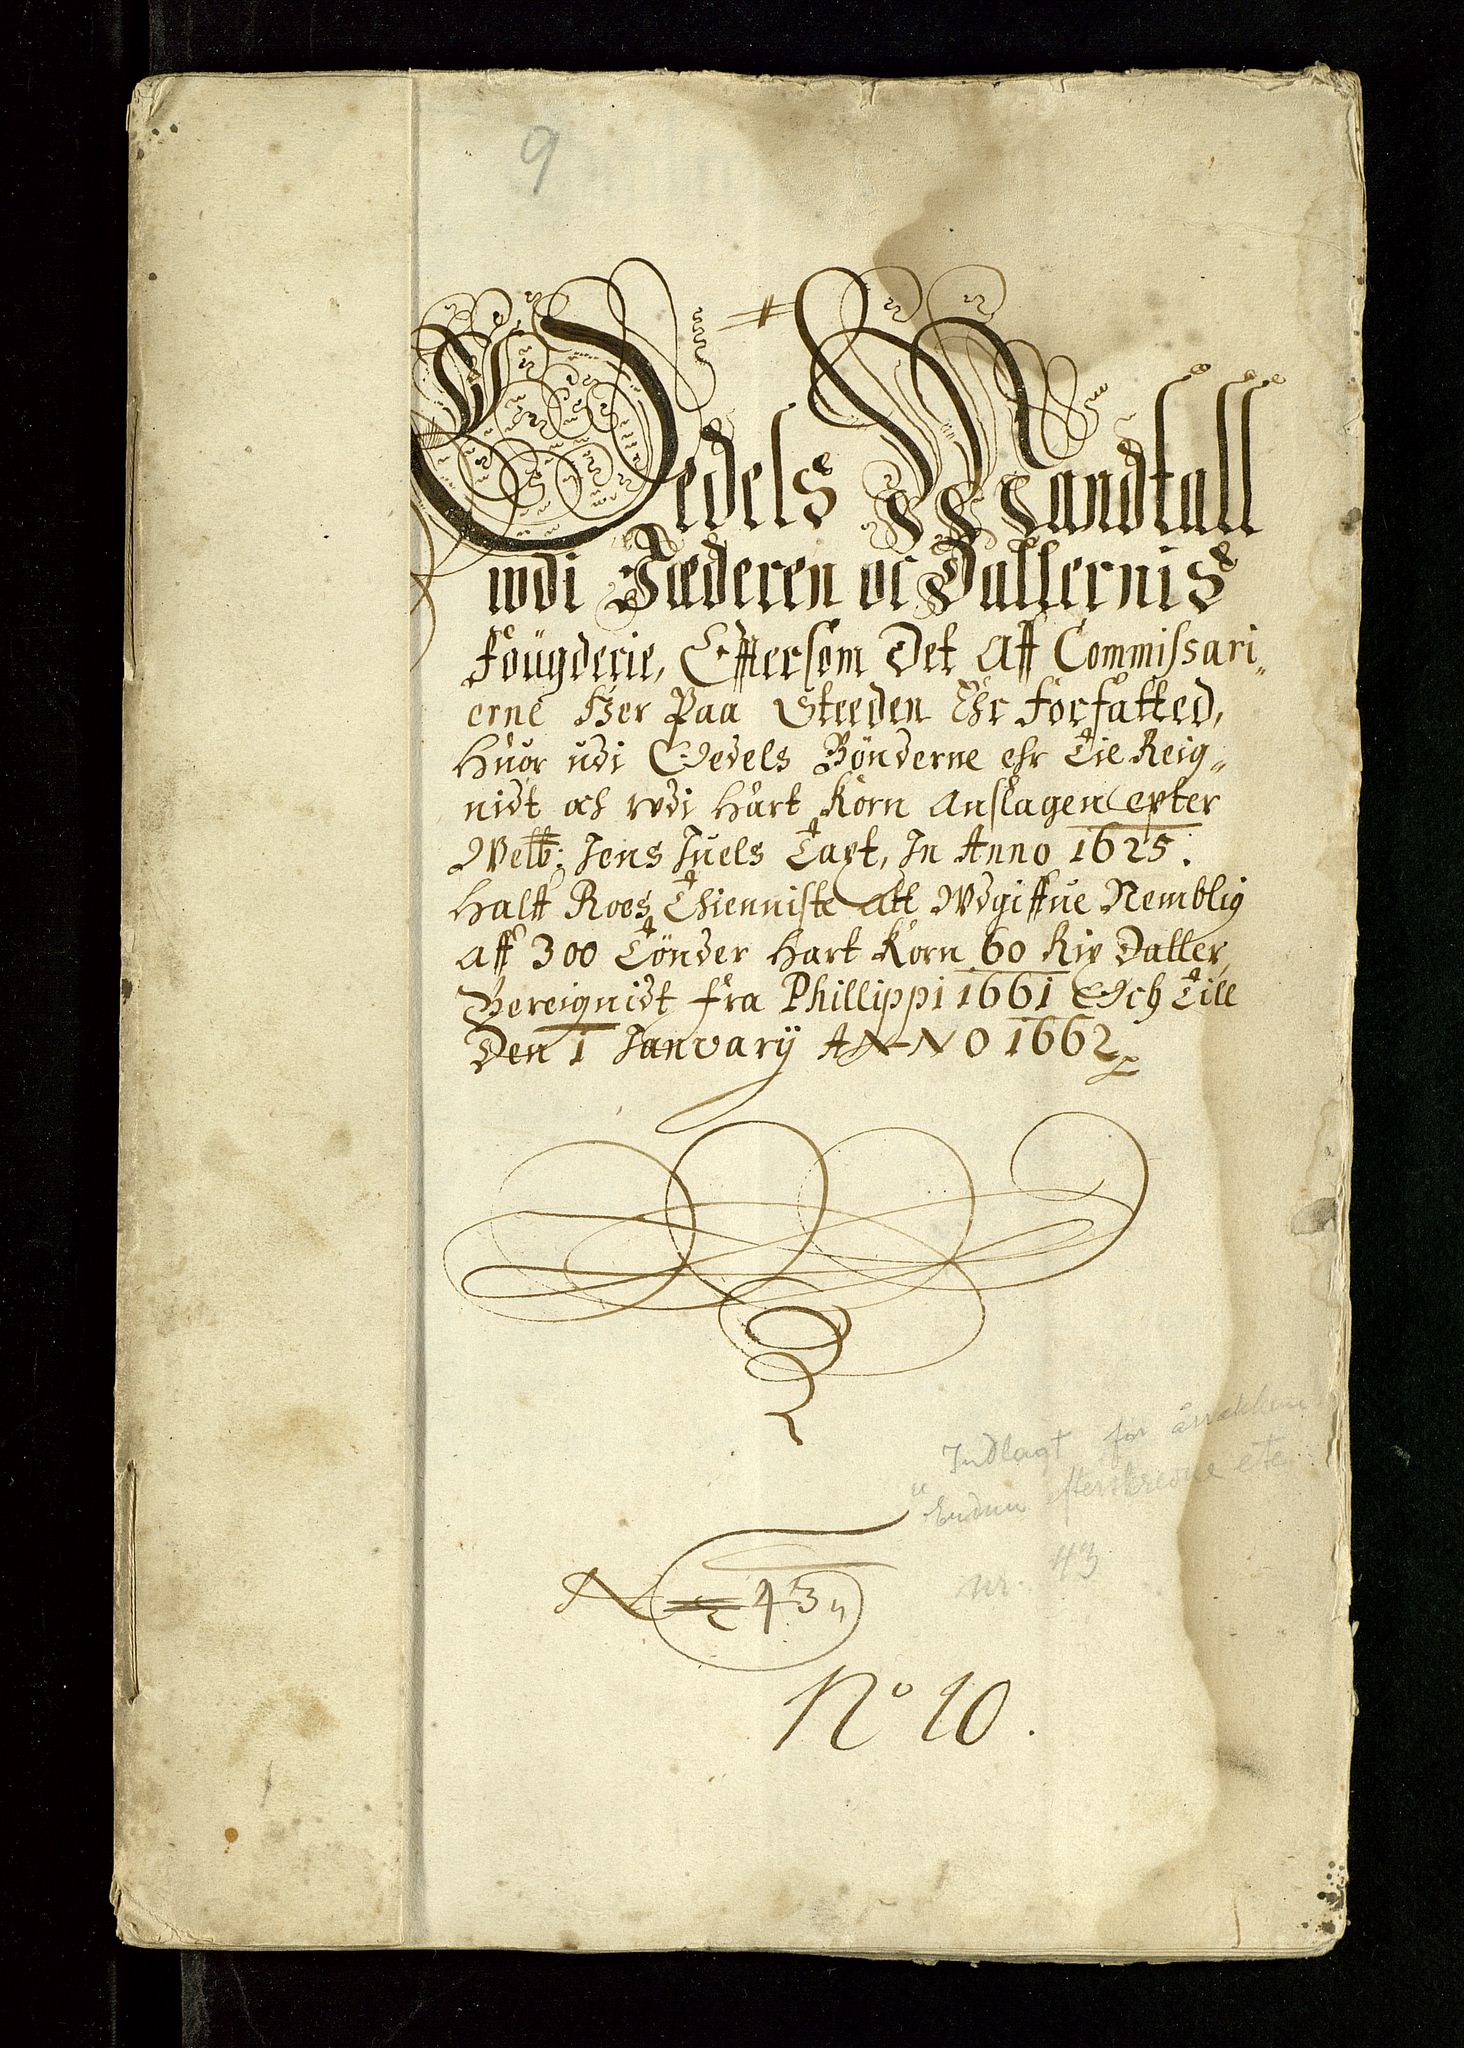 9
Oedels Mandtall
wdi Jæderen oc Dallernis
fougderie, Efftersom Det Aff Commissari„
erne Her Paa Steeden Ehr forfatted,
Huor udi Oedels Bönderne ehr Tie Reig„
nidt och wdi Hart Korn Anslagen epter
Welb: Jens Juels Taxt, In Anno 1625.
Halff Roes Thienniste Att Wdgiffue Nemblig
Aff 300 Tönder Hart Korn 60 Rix Daller,
Bereignidt fra Phillippi 1661 Och Till
Den 1 January ANNO 1662
Indlagt for årrækken
efterskrevne etc
nr. 43
N 43„
No 10.